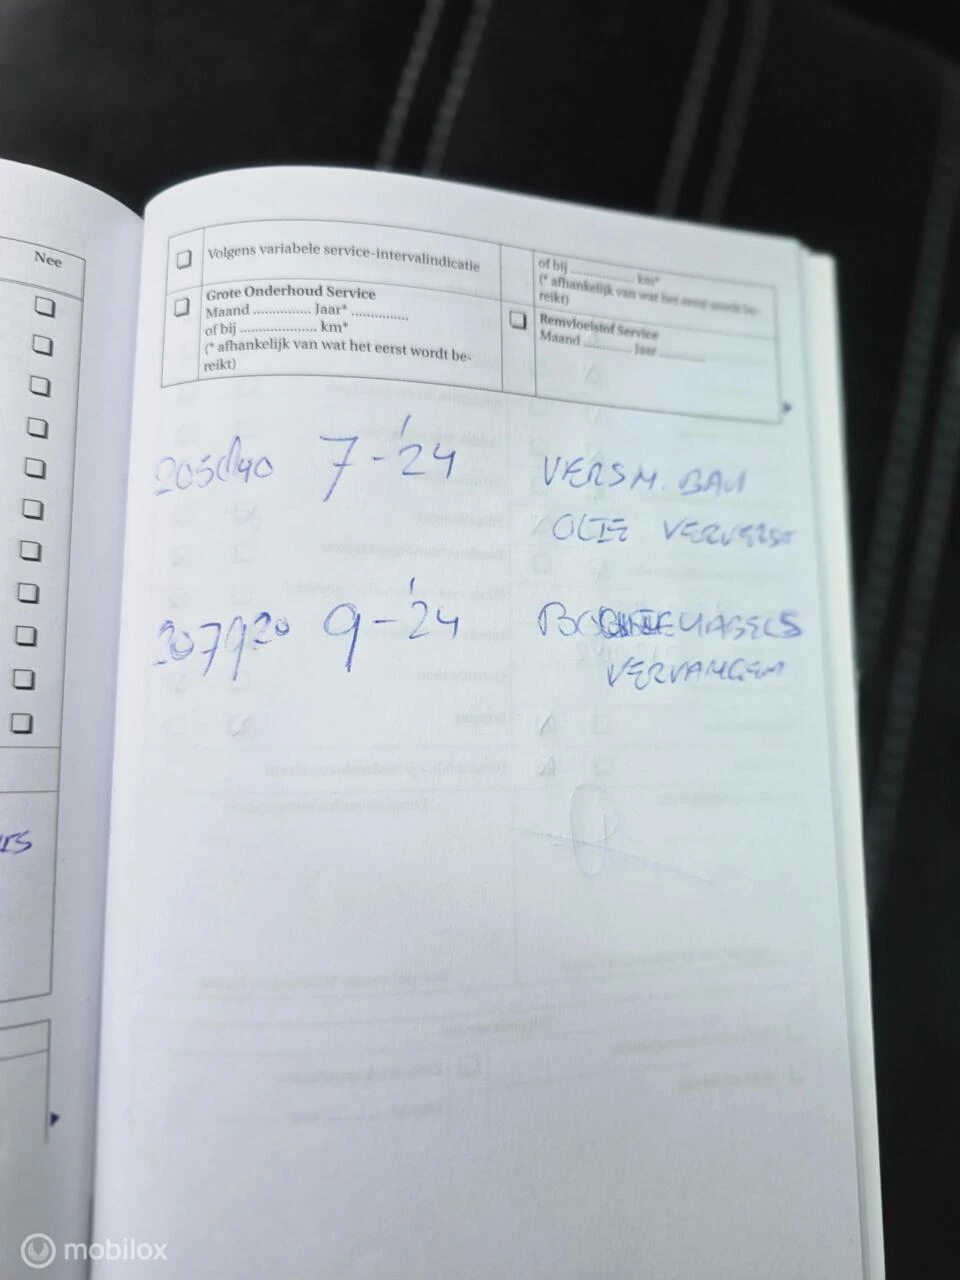 Nee
Volgens variabele service-intervalindicatie
Grote Onderhoud Service
Maand ............... Jaar* ...............
of bij .................... km*
(* afhankelijk van wat het eerst wordt be-
reikt)
of bij .................... km*
(* afhankelijk van wat het eerst wordt be-
reikt)
Remvloeistof Service
Maand ............... Jaar ...............
7-'24
VERSM. BAU
OLIE VERVERSE
207920 9-'24
VERVANGEN
mobilox